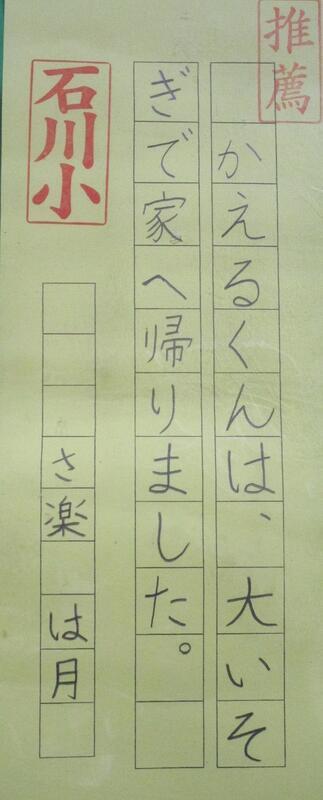 推薦
かえるくんは、大いそ
ぎで家へ帰りました。
石川小
さ楽 は月